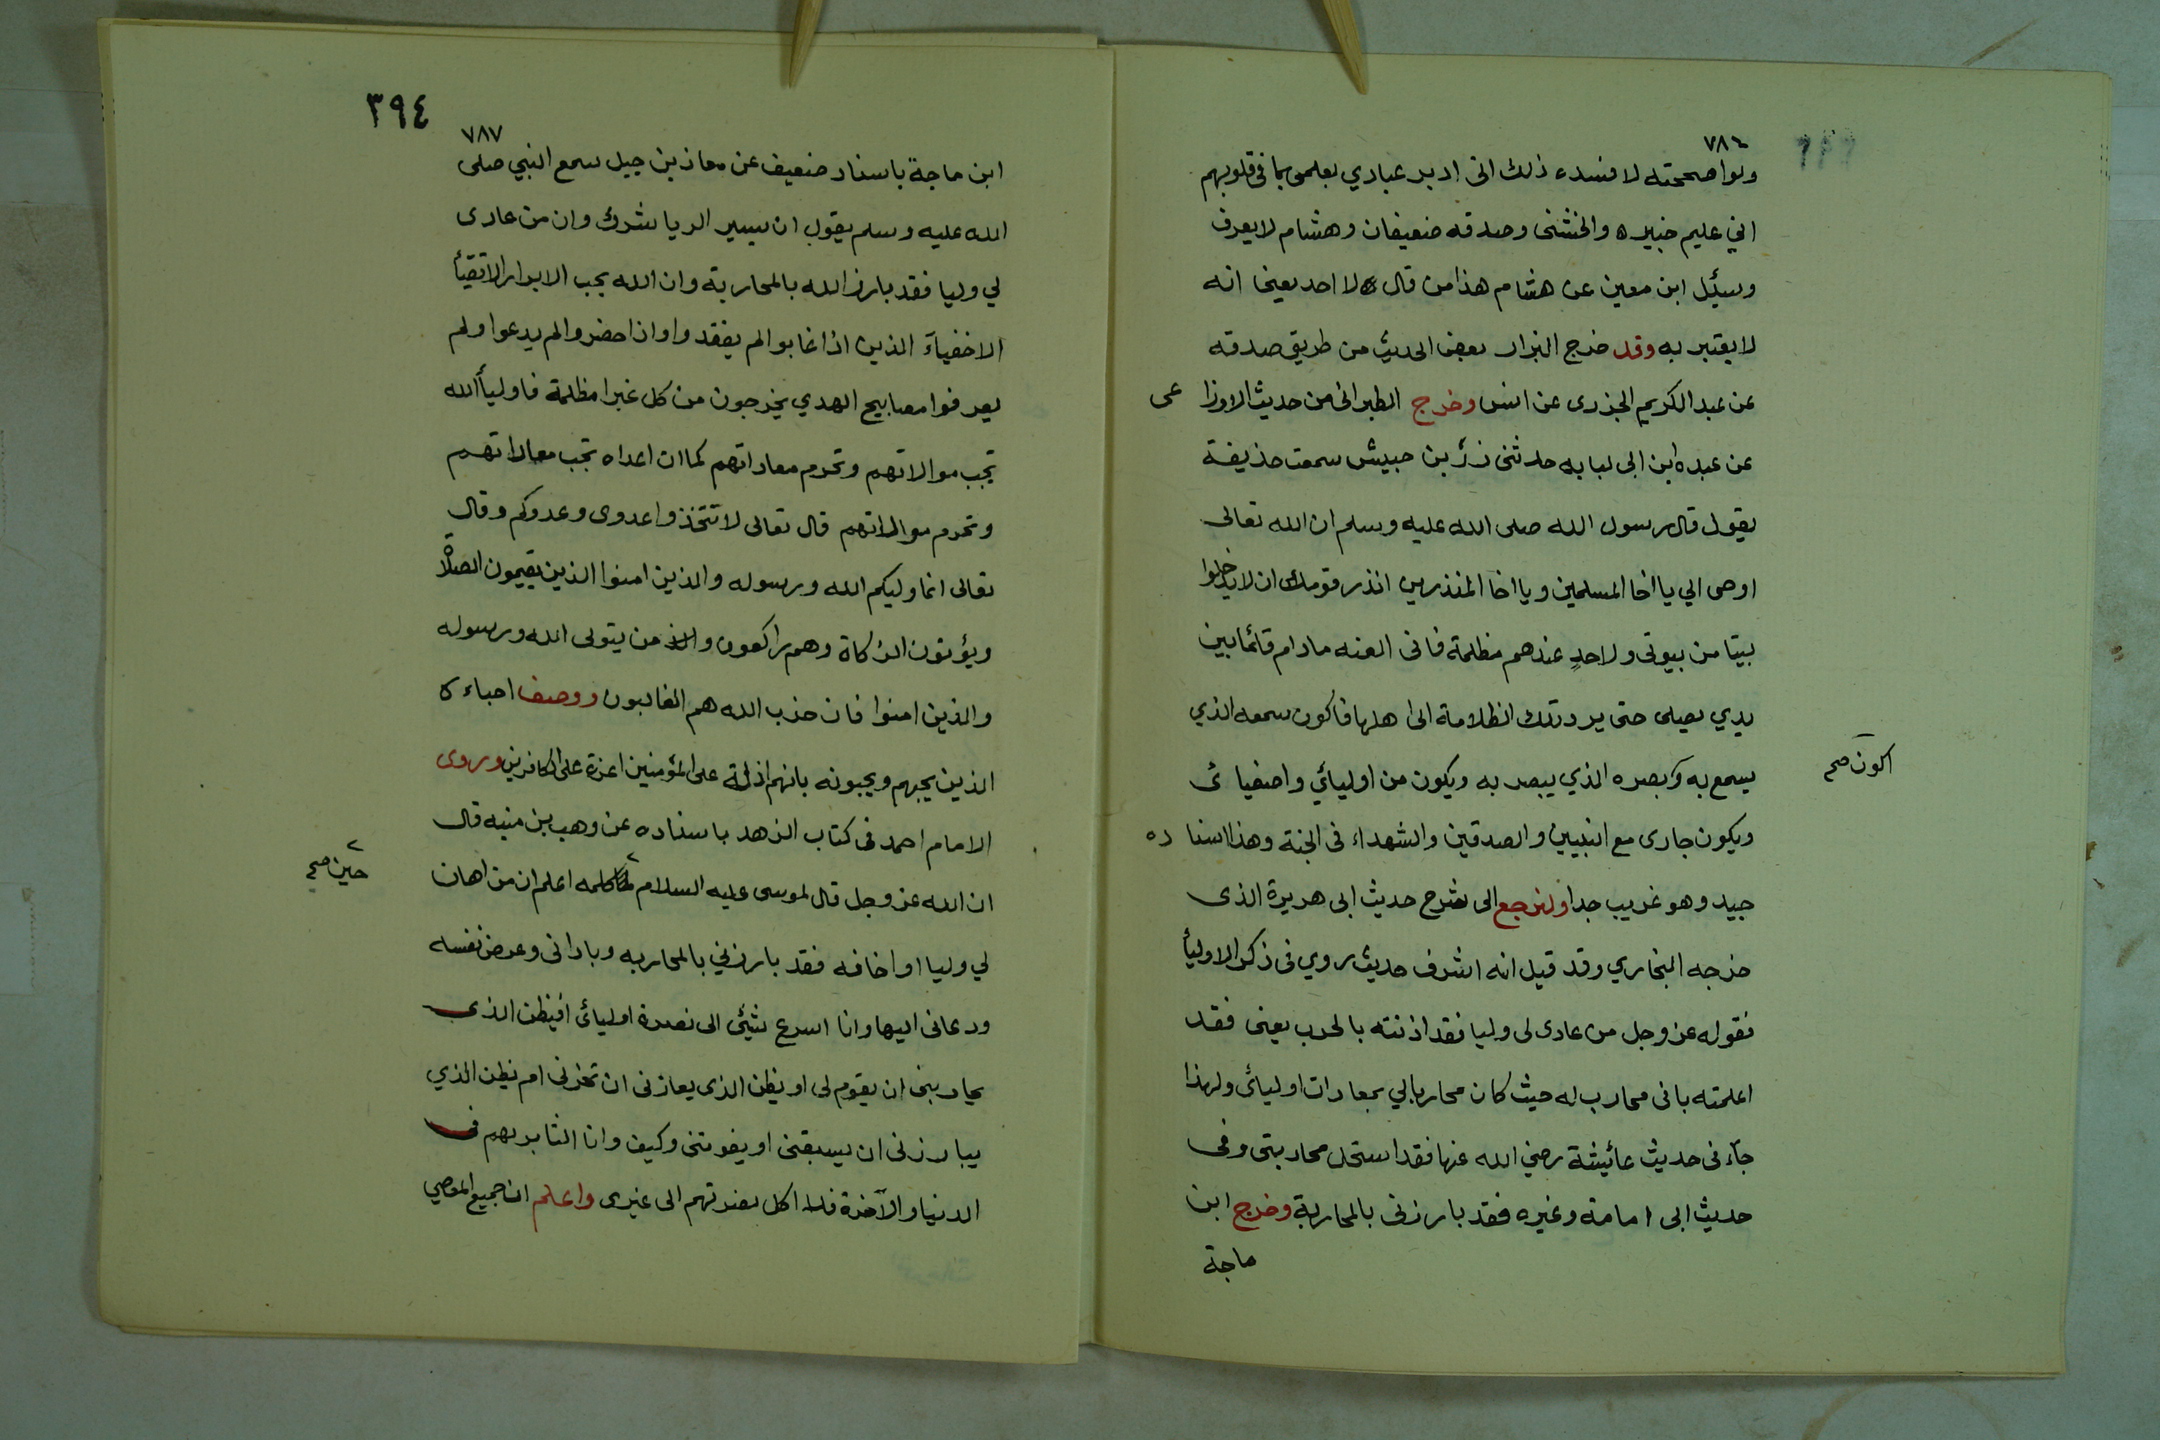 ٧٨٦
ولواصححته لافسده ذلك انى ادبر عبادي بعلمى بما فى قلوبهم
اني عليم خبير ه والخشنى وصدقه ضعيفان وهشام لايعرف
وسئيل ابن معين عن هشام هذا من قال لا احد يعنى انه
لايعتبر به وقد خرج البزار بعض الحديث من طريق صدقه
عن عبد الكريم الجذرى عن انس وخرج الطبرانى من حديث الاوزا عى
عن عبده ابن ابى لبابه حدثنى زرّ بن حبيش سمعت حذيفة
يقول قال رسول الله صلى الله عليه وسلم ان الله تعالى
اوحى الي يااخا المسلمين ويااخا المنذرين انذر قومك ان لايدخلوا
بيتا من بيوتى ولاحدٍ عندهم مظلمة فانى العنه مادام قائما بين
يدي يصلى حتى يرد تلك الظلامة الى اهلها فاكون سمعه الذي
يسمع به وبصره الذي يبصر به ويكون من اوليائي واصفيا ئى
اكون صح
ويكون جارى مع النبيين والصدقين والشهداء فى الجنة وهذا اسنا ده
جيد وهو غريب جدا ولنرجع الى شرح حديث ابى هريرة الذى
خرجه البخاري وقد قيل انه اشرف حديث روي فى ذكر الاوليأ
فقوله عز وجل من عادى لى وليا فقد اذنته بالحرب يعنى فقد
اعلمته بانى محارب له حيث كان محاربا لي بمعادات اوليائى ولهذا
جآء فى حديث عائيشة رضي الله عنها فقد استحل محاربتى وفى
حديث ابى امامة وغيره فقد بارزنى بالمحاربة وخرج ابن
ماجة
٣٩٤
٧٨٧
ابن ماجة باسناد ضعيف عن معاذ بن جبل سمع النبي صلى
الله عليه وسلم يقول ان يسير الريا شرك وان من عادى
لي وليا فقد بارز الله بالمحاربة وان الله يحب الابرار الاتقيأ
الاخفيآء الذين اذا غابوا لم يفقدوا واذا حضروا لم يدعوا ولم
يعرفوا مصابيح الهدي يخرجون من كل غبرا مظلمة فاوليأ الله
تجب موالاتهم وتحرم معاداتهم كما ان اعداه تجب معاداتهم
وتحرم موالاتهم قال تعالى لا تتخذوا عدوى وعدوكم وقال
تعالى انما وليكم الله ورسوله والذين امنوا الذين يقيمون الصلاة
ويؤتون الزكاة وهم راكعون ومن يتولى الله ورسوله
والذين امنوا فان حذب الله هم الغالبون ووصف احباءه
الذين يحبهم ويحبونه بانهم اذلة على المؤمنين اعزة على الكافرين وروى
الامام احمد فى كتاب الزهد باسناده عن وهب بن منبه قال
ان الله عز وجل قال لموسى عليه السلام كلمه اعلم ان من اهان
حين صح
لي وليا او اخافه فقد بارزني بالمحاربه وبادانى وعرض نفسه
ودعانى اليها وانا اسرع شئى الى نصرة اوليائى افيظن الذى
يحاربنى ان يقوم لى او يظن الذى يعازنى ان تعجزنى ام يظن الذي
يبارزنى ان يسبقنى او يفوتنى وكيف وانا الثابر بهم فى
الدنيا والآخرة فلا اكل نصرتهم الى غيرى واعلم ان جميع المعاصي